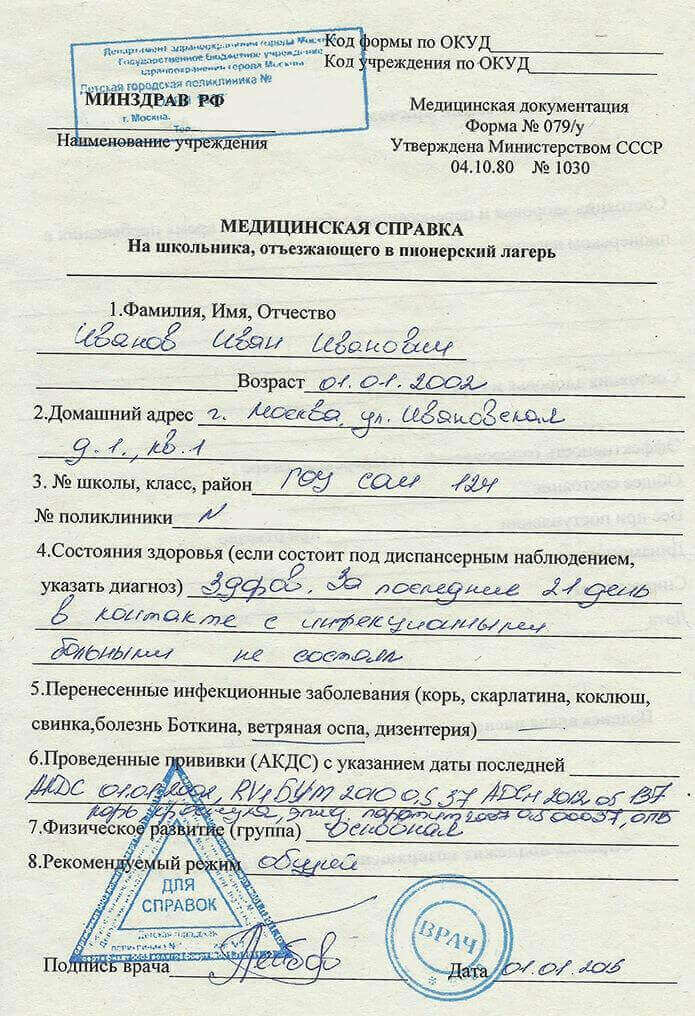 Департамент здравоохранения города Москвы
Государственное бюджетное учреждение
здравоохранения города Москвы
Детская городская поликлиника №
г. Москва,
Код формы по ОКУД
Код учреждения по ОКУД
МИНЗДРАВ РФ
Наименование учреждения
Медицинская документация
Форма № 079/у
Утверждена Министерством СССР
04.10.80 № 1030
МЕДИЦИНСКАЯ СПРАВКА
На школьника, отъезжающего в пионерский лагерь
1.Фамилия, Имя, Отчество
Иванов Иван Иванович
Возраст 01.01.2002
2.Домашний адрес г. Москва, ул. Ивановская
д.1., кв.1
3. № школы, класс, район ГОУ СОШ 124
№ поликлиники N
4.Состояния здоровья (если состоит под диспансерным наблюдением,
указать диагноз) Здоров. За последние 21 день
в контакте с инфекционными
больными не состоял
5.Перенесенные инфекционные заболевания (корь, скарлатина, коклюш,
свинка,болезнь Боткина, ветряная оспа, дизентерия)
6.Проведенные прививки (АКДС) с указанием даты последней
АКДС 01.01.2002, RV1 2010 0,5 37 АДСН 2012 05 137
корь краснуха, эпид. паротит 2007 0,5 00037, ОПВ
7.Физическое развитие (группа) основная
8.Рекомендуемый режим общий
ДЛЯ
СПРАВОК
Детская городская
поликлиника №
ВРАЧ
Подпись врача
Дата 01.01.2015